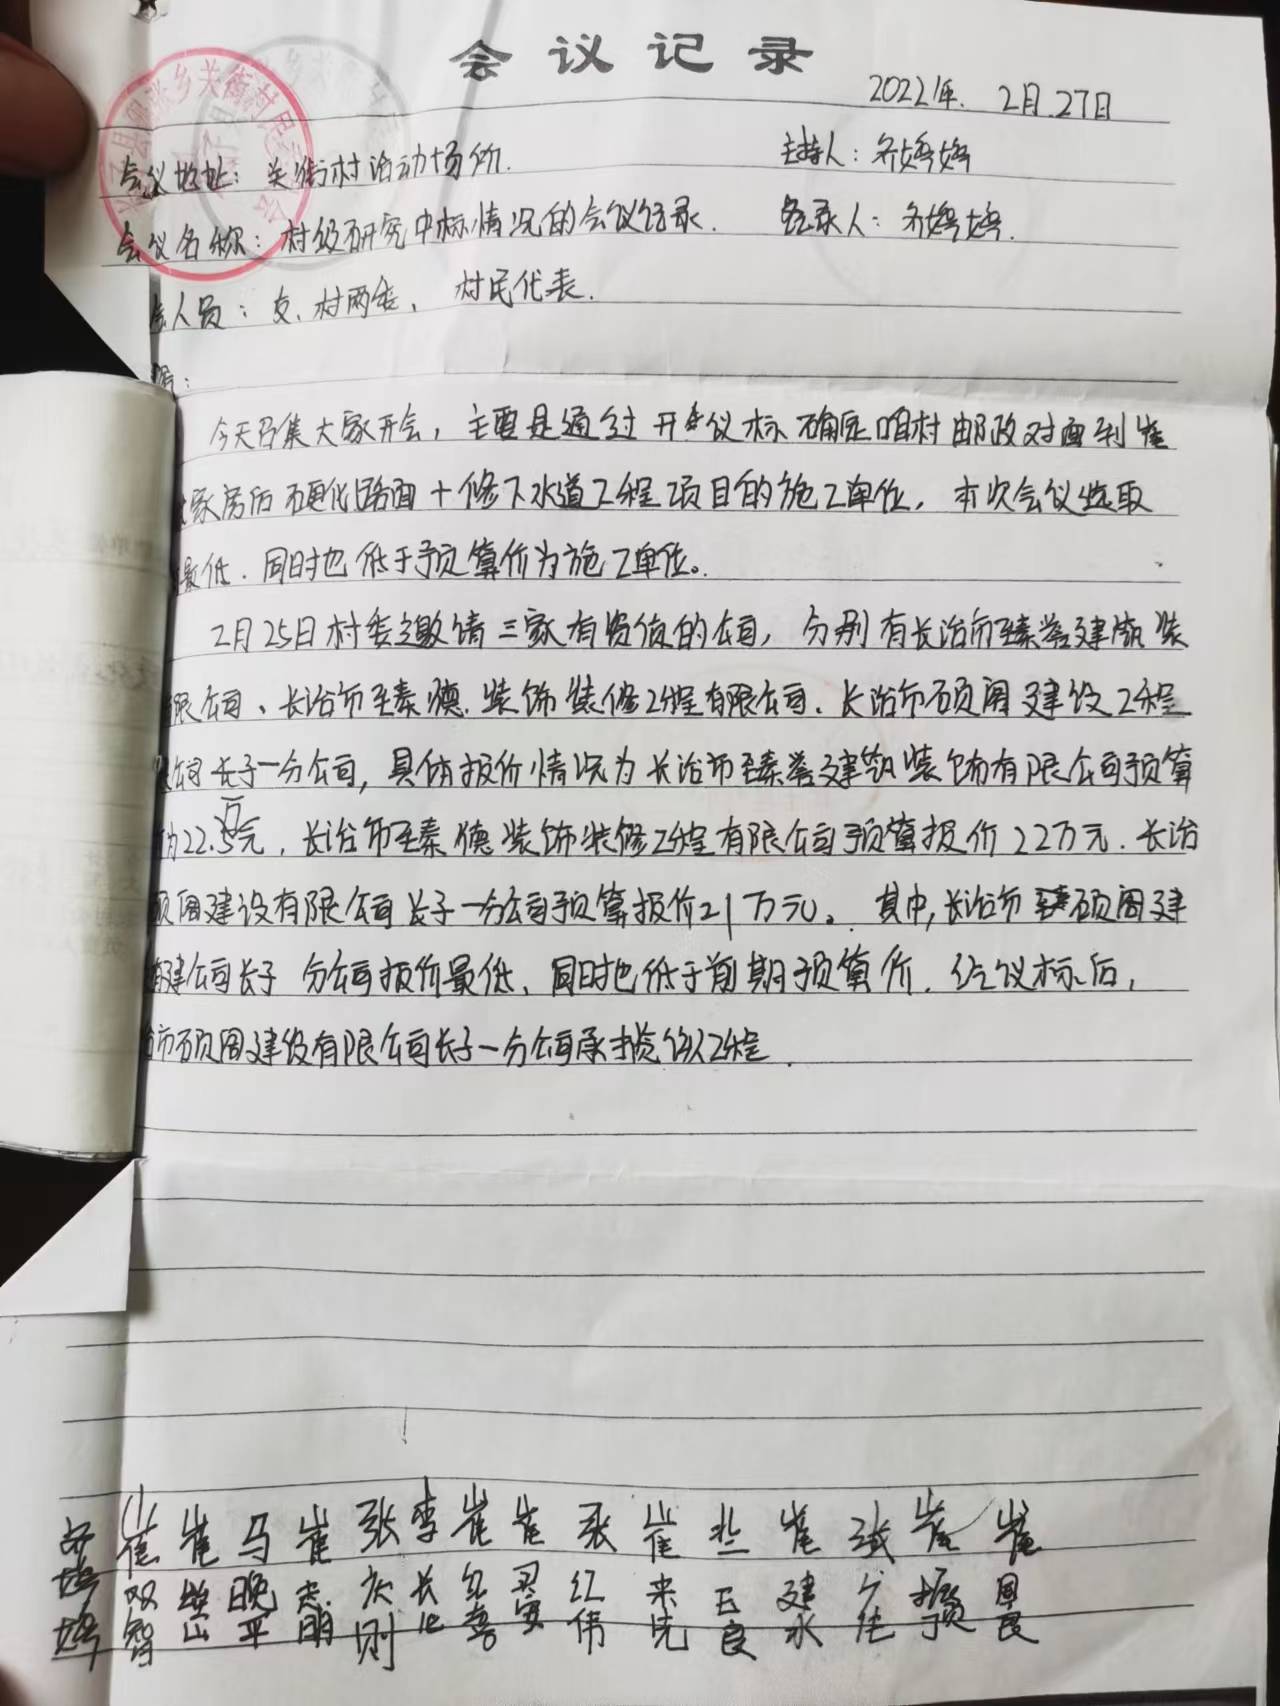 会议记录
2022年.2月.27日
会议地址：关街村活动场所.
主持人：乔婷婷
会议名称：村级研究中标情况的会议纪录.
纪录人：乔婷婷.
人员：支、村两委、村民代表.
今天召集大家开会，主要是通过开会议标确定咱村邮政对面到崔
家房后硬化路面+修下水道工程项目的施工单位，本次会议选取
最低.同时也低于预算价为施工单位。
2月25日村委邀请三家有资质的公司，分别有长治市臻誉建筑装
限公司、长治市臻德.装饰装修工程有限公司.长治市硕阁建设工程
公司长子一分公司，具体报价情况为长治市臻誉建筑装饰有限公司预算
22.5万元，长治市臻德装饰装修工程有限公司预算报价22万元.长治
硕阁建设有限公司长子一分公司预算报价21万元。其中，长治市硕阁建
公司长子 分公司报价最低、同时也低于前期预算价.经议标后，
市硕阁建设有限公司长子一分公司承揽该工程.
乔婷婷 崔双智 崔 马晚平 崔志明 张庆则 李长 崔 崔 张红伟 崔来 崔建永 张 崔 崔国良